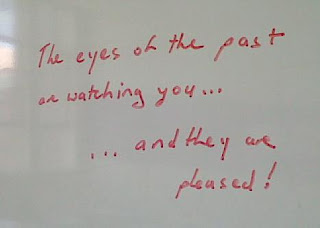 The eyes of the past
are watching you...
... and they are
pleased!